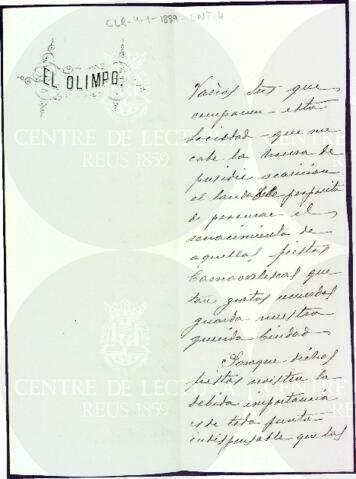 CLR-4-1-1889-CNT:4
EL OLIMPO
Varios Sres que
componen esta
Sociedad que me
cabe la honra de
presidir acarician
el laudable proposito
de procurar el
renacimiento de
aquellas fiestas
Carnavalescas que
tan gratos recuerdos
guarda nuestra
querida Ciudad
Para que dichas
fiestas revistan la
debida importancia
es de todo punto
indispensable que las
CENTRE DE LECTURA
REUS 1859
CENTRE DE LECTURA
REUS 1859